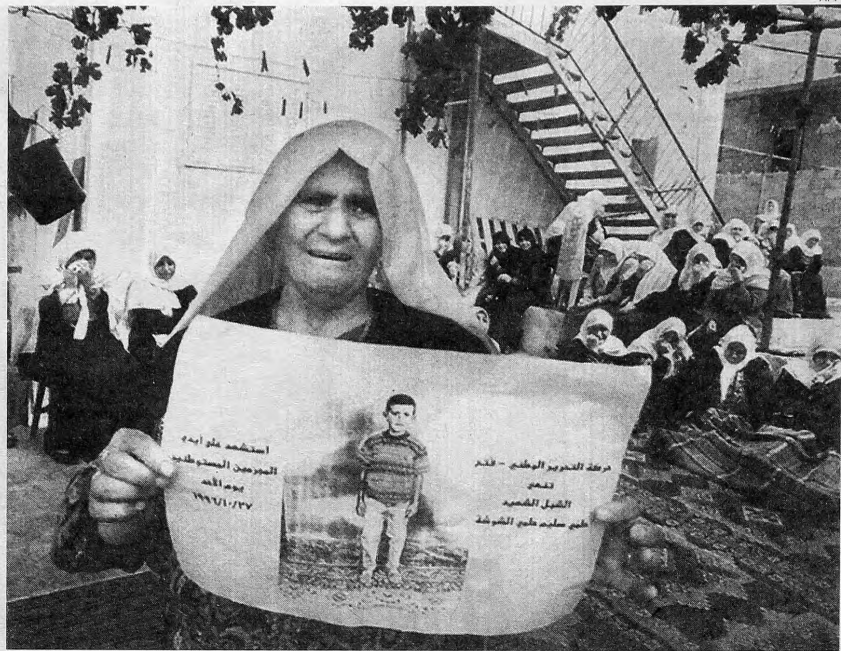 حركة التحرير الوطني - فتح
تنعي
الشبل الشهيد
حلمي سليم حلمي الشوشة
استشهد على أيدي
المجرمين المستوطنين
يوم الأحد
١٩٩٦/١٠/٢٧